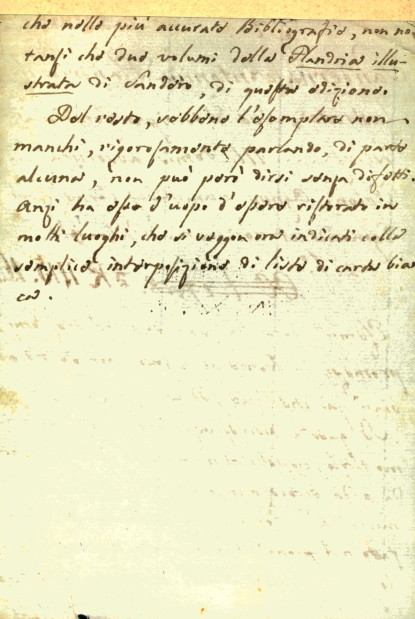 che nelle più accurate Bibliografie, non no-
tansi che due volumi della Flandria illu-
strata di Sandero, di questa edizione.
Del resto, sebbene l'esemplare non
manchi, rigorosamente parlando, di parte
alcuna, non può però dirsi senza difetti.
Anzi ha esso d'uopo d'essere ristorato in
molti luoghi, che si veggon ora indicati colla
semplice interposizione di liste di carta bian
ca.